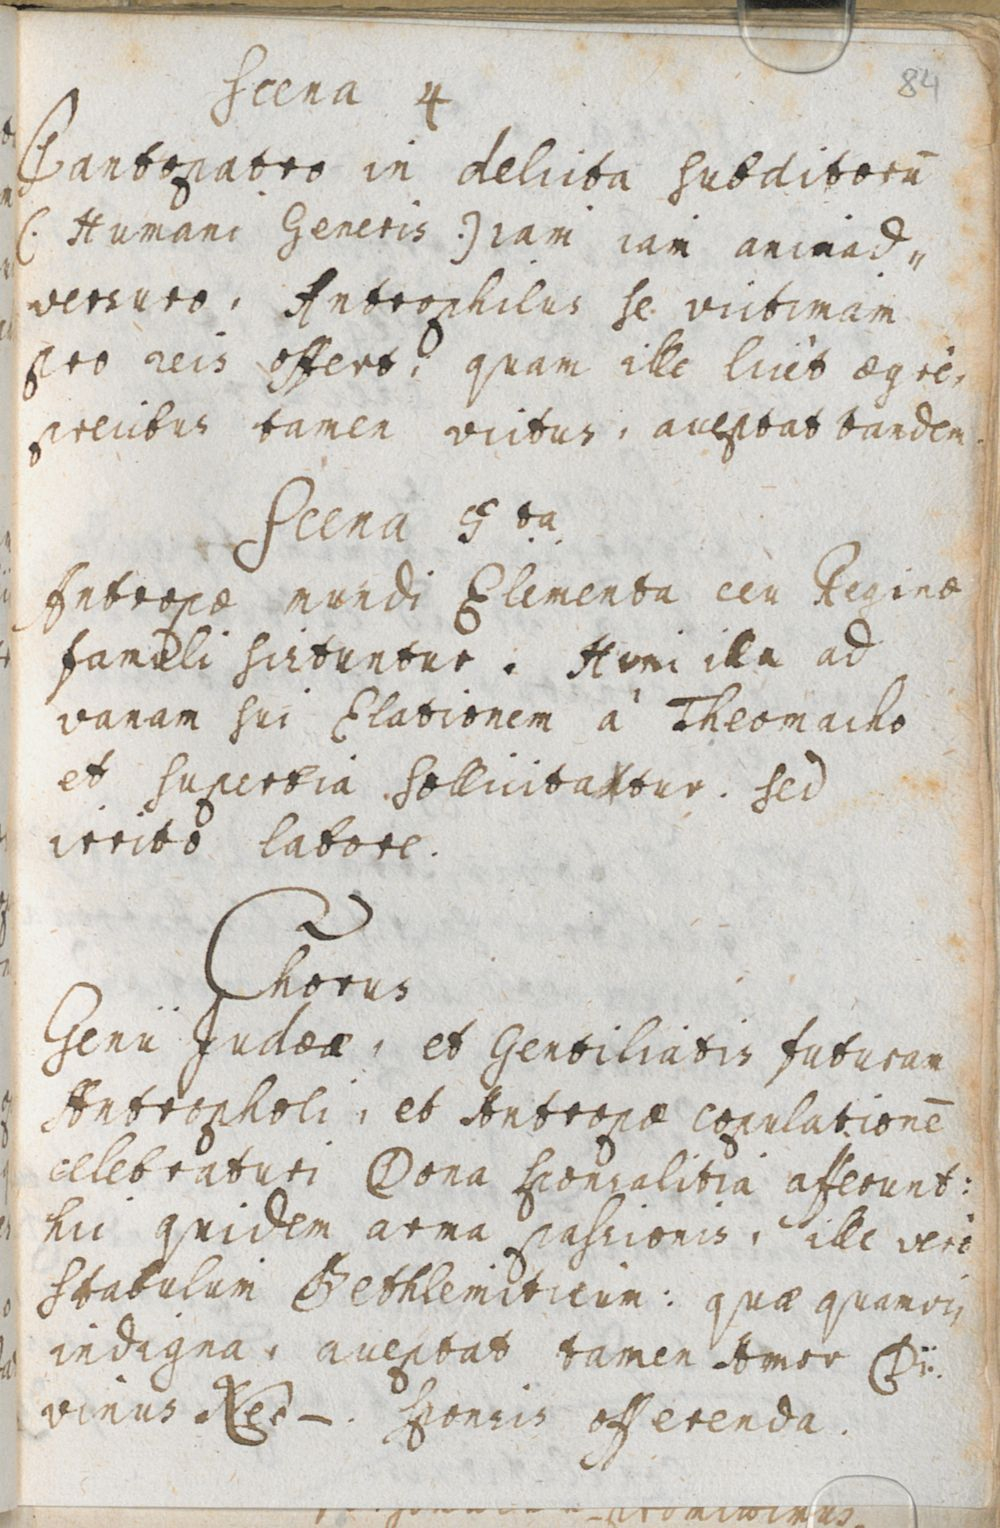 84
Scena 4
Pantopatro in delicta subditorū
(: Humani Generis :) iam iam animad„
versuro, Antrophilus se victimam
pro reis offert, quam ille licèt ægrè,
precibus tamen victus, acceptat tandem.
Scena 5 ta
Antropæ mundi Elementa ceu Reginæ
famuli sistuntur. Hinc illa ad
vanam sui Elationem à Theomacho
et superbia sollicitatur. sed
irrito labore.
Chorus
Genii Judææ, et Gentilitatis futuram
Antropholi, et Antropæ copulationē
celebraturi Dona sponsalitia afferunt:
hic quidem arma passionis, ille verò
stabulum Bethlemiticum: quæ quamvis
indigna, acceptat tamen Amor Di:
vinus Neo–. sponsis offerenda.